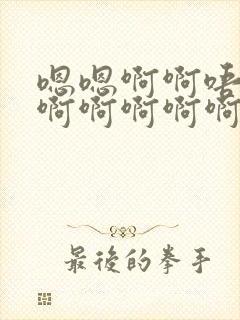 嗯嗯啊啊唔
啊啊啊啊啊
最後的拳手